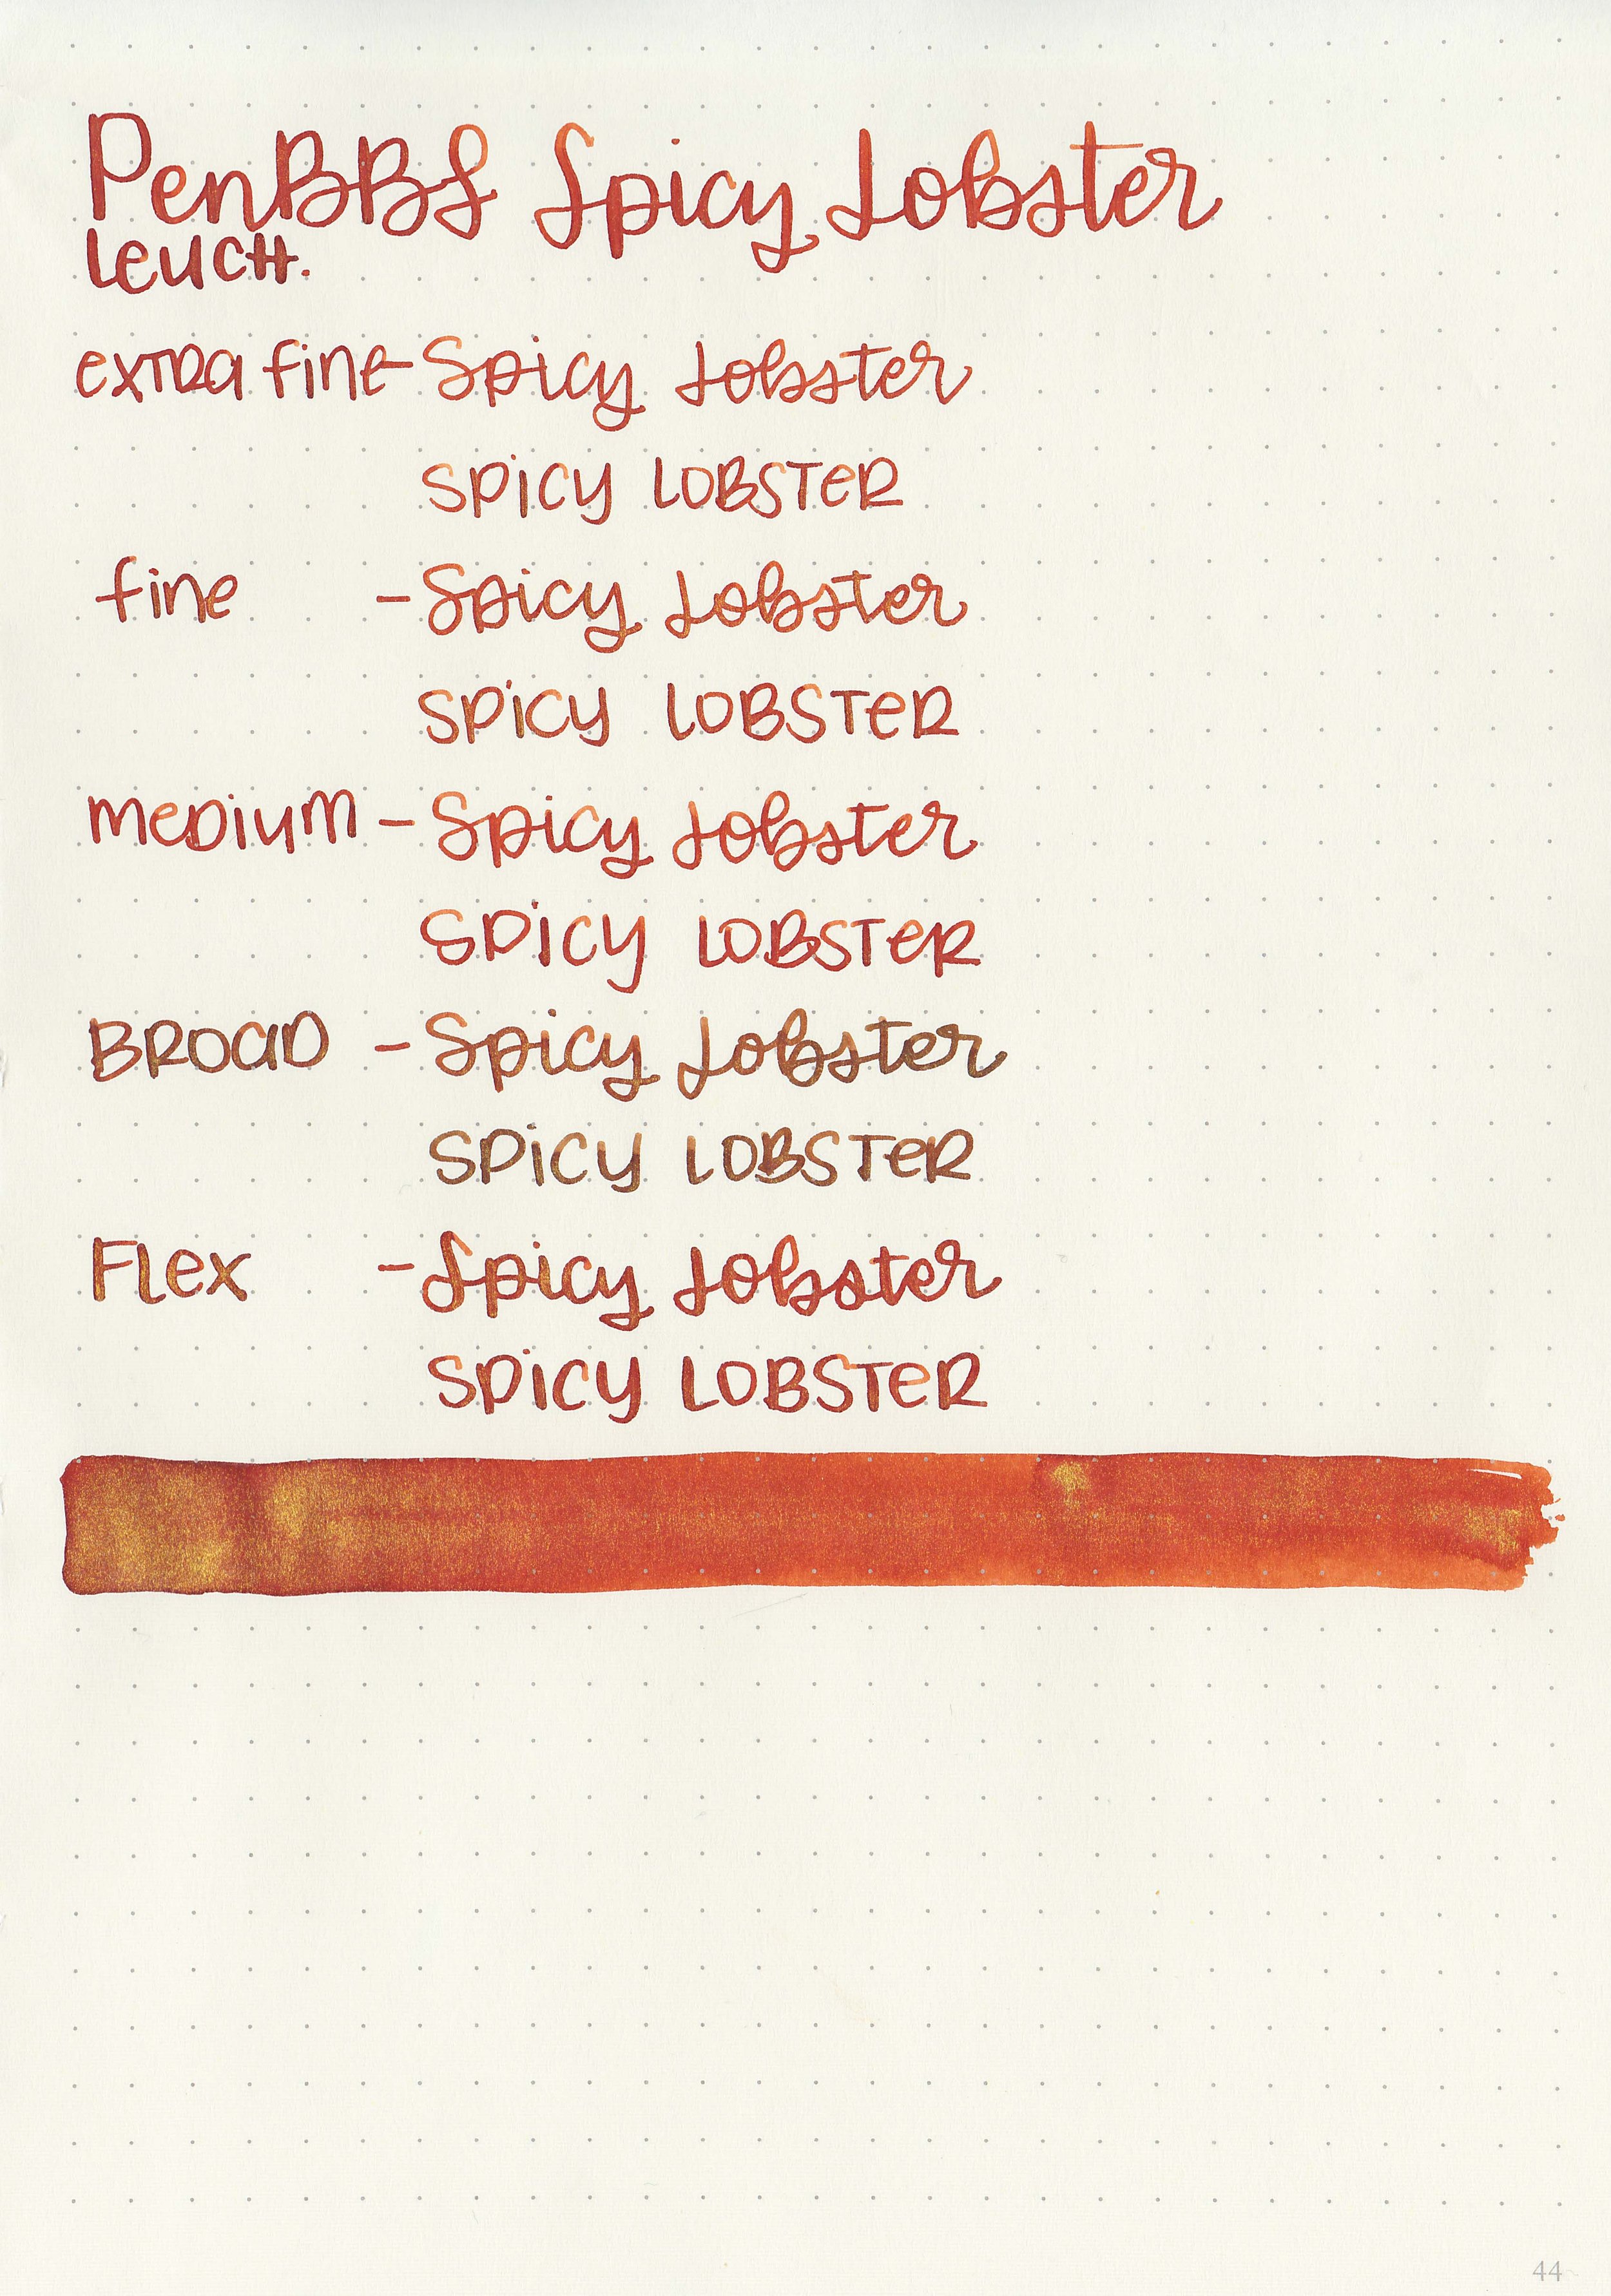 PenBBS Spicy Lobster
Leuch.
extra fine - Spicy Lobster
SPiCY LOBSTeR
fine - Spicy Lobster
SPiCY LOBSTeR
meDium - Spicy Lobster
SPiCY LOBSTeR
BROaD - Spicy Lobster
SPiCY LOBSTeR
FLex - Spicy Lobster
SPiCY LOBSTeR
44